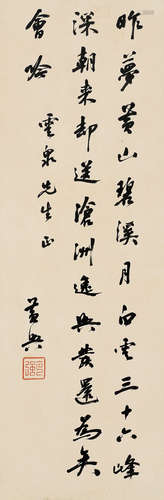 昨夢黄山碧溪月白雲三十六峰
深朝来却送滄洲逸興發還為吳
會吟
雲泉先生正
黄興